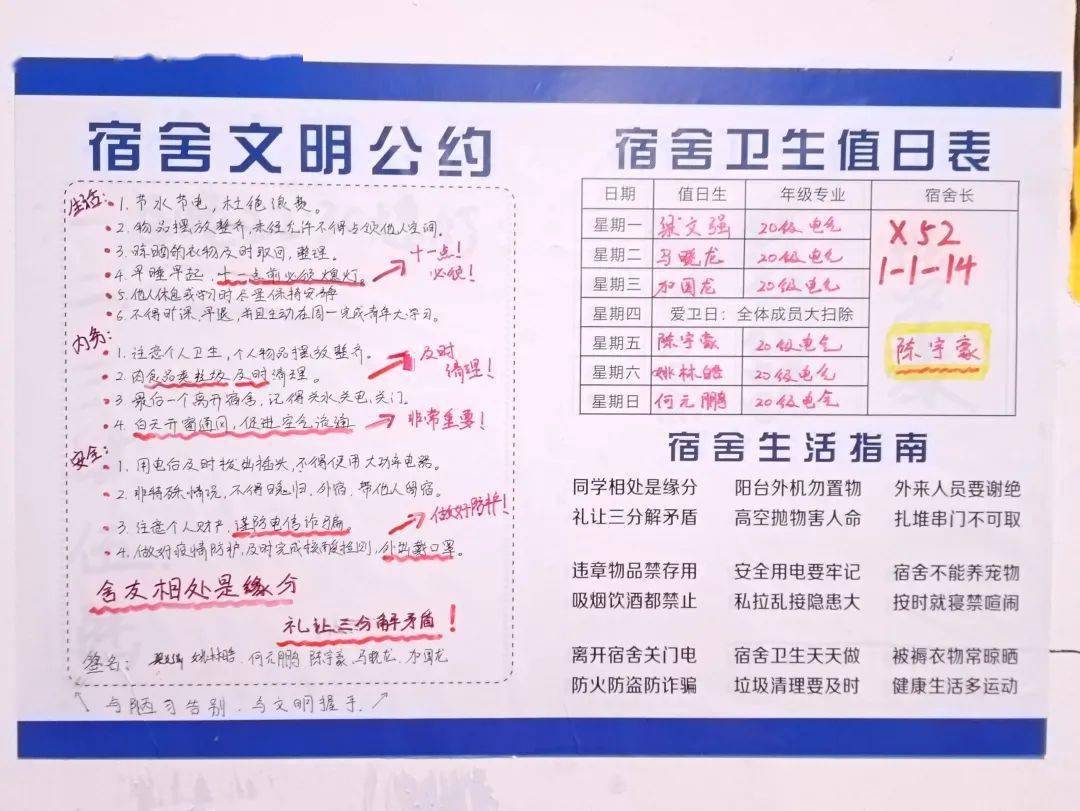 宿舍文明公约
生活：1. 节水节电，杜绝浪费。
2. 物品摆放整齐，未经允许不得占领他人空间。
3. 晾晒的衣物及时取回、整理。
4. 早睡早起，十一点前必须熄灯。
十一点！
必须！
5. 他人休息或学习时尽量保持安静
6. 不得旷课、早退，并且主动在周一完成青年大学习。
内务：
1. 注意个人卫生，个人物品摆放整齐。
2. 肉食品类垃圾及时清理。
及时
清理！
3. 最后一个离开宿舍，记得关水关电、关门。
4. 白天开窗通风，促进空气流通
非常重要！
安全：
1. 用电后及时拔出插头，不得使用大功率电器。
2. 非特殊情况，不得晚归、外宿、带他人留宿。
3. 注意个人财产，谨防电信诈骗。
做好防护！
4. 做好疫情防护，及时完成核酸检测，外出戴口罩。
舍友相处是缘分
礼让三分解矛盾！
签名：梁文强 姚林皓 何元鹏 陈宇豪、马晓龙、加国龙
与陋习告别、与文明握手。
宿舍卫生值日表
日期 值日生 年级专业 宿舍长
星期一 梁文强 20级电气
X52
星期二 马晓龙 20级电气
1-1-14
星期三 加国龙 20级电气
星期四 爱卫日：全体成员大扫除
星期五 陈宇豪 20级电气
陈宇豪
星期六 姚林皓 20级电气
星期日 何元鹏 20级电气
宿舍生活指南
同学相处是缘分 阳台外机勿置物 外来人员要谢绝
礼让三分解矛盾 高空抛物害人命 扎堆串门不可取
违章物品禁存用 安全用电要牢记 宿舍不能养宠物
吸烟饮酒都禁止 私拉乱接隐患大 按时就寝禁喧闹
离开宿舍关门电 宿舍卫生天天做 被褥衣物常晾晒
防火防盗防诈骗 垃圾清理要及时 健康生活多运动